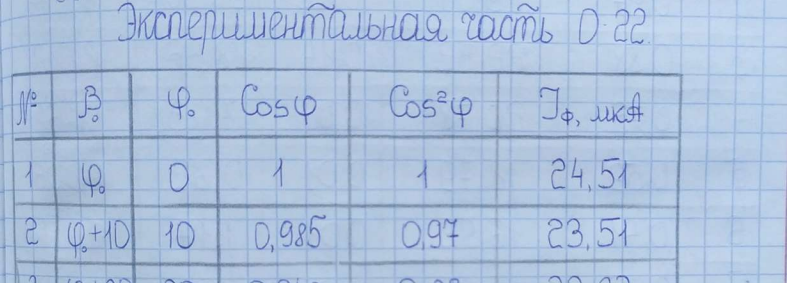 Экспериментальная часть О-22.
№ β₀ φ₀ Cosφ Cos²φ Iф, мкА
1 φ₀ 0 1 1 24,51
2 φ₀+10 10 0,985 0,97 23,51